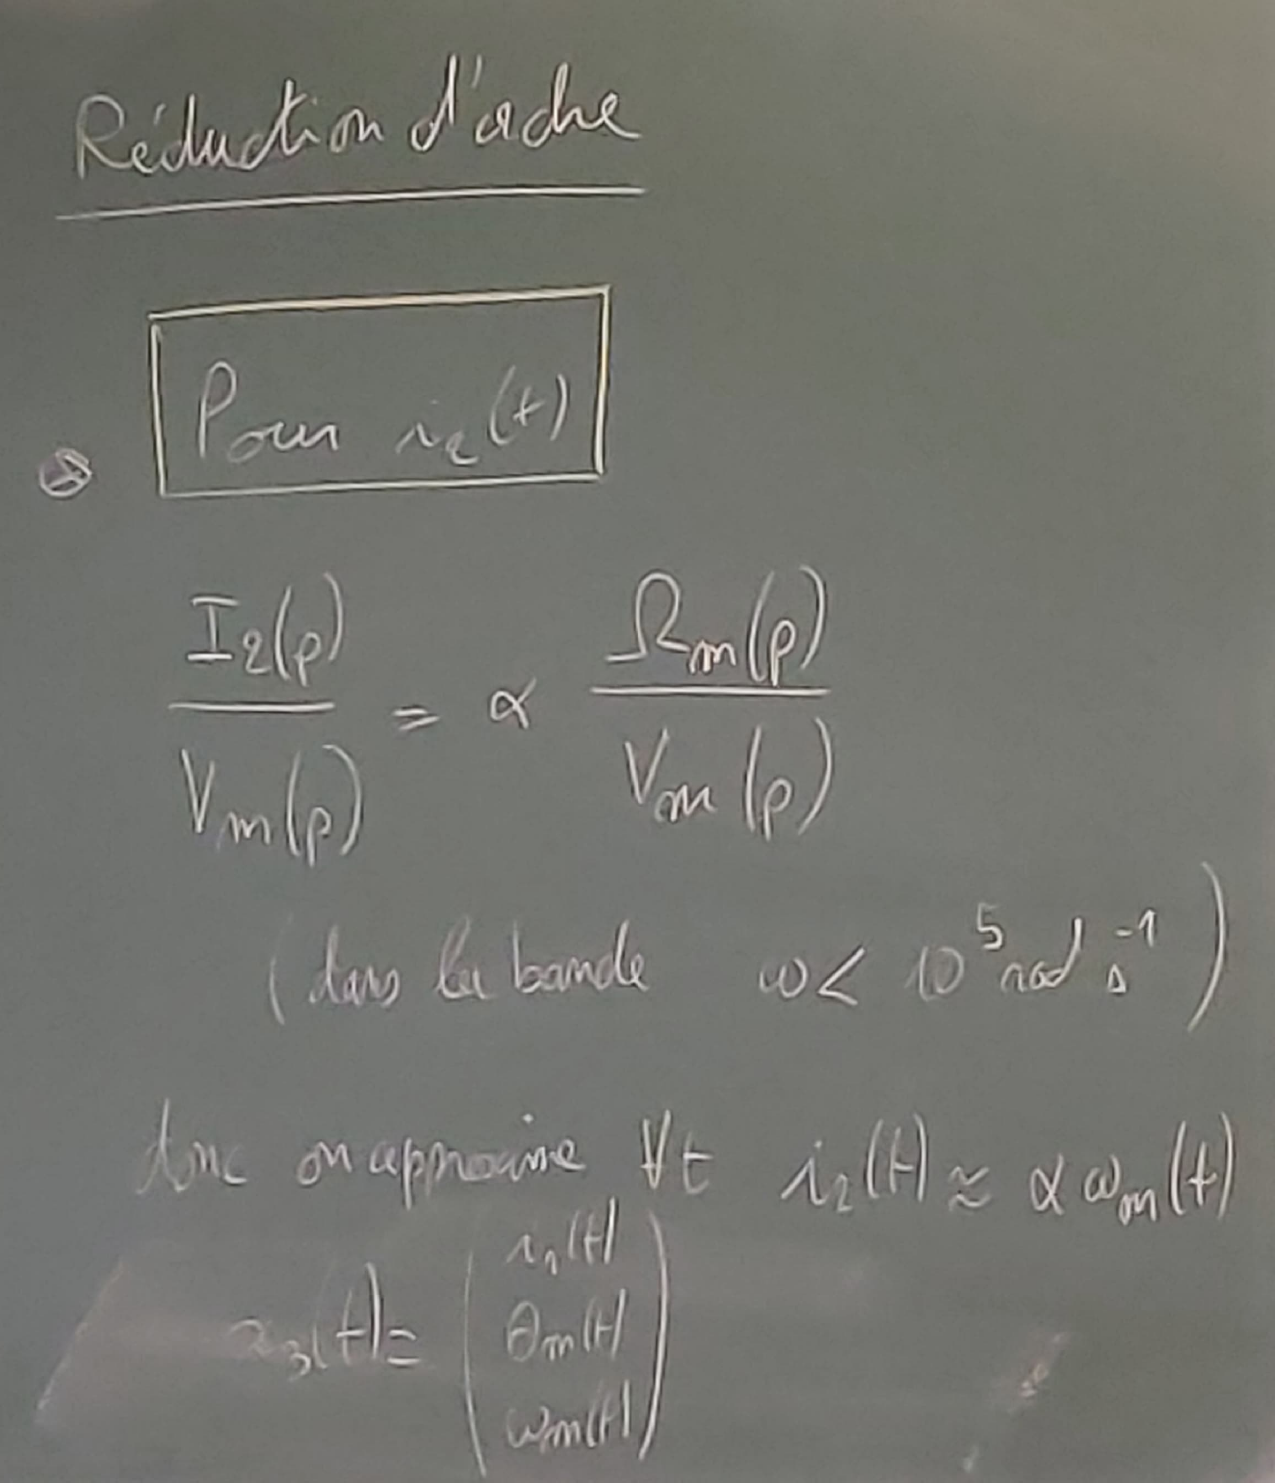 Réduction d'ordre
Pour i₂(t)
I₂(p)/Vm(p) = α Ωm(p)/Vm(p)
(dans la bande ω < 10⁵ rad s⁻¹)
donc on approxime ∀t i₂(t) ≈ α ωm(t)
x₃(t) = ( i₁(t)
θm(t)
ωm(t) )